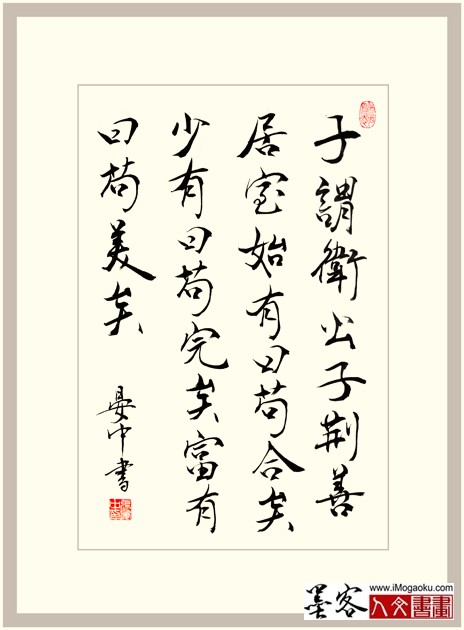 子謂衛公子荆善
居室始有曰苟合矣
少有曰苟完矣富有
曰苟美矣
晏中書
墨客
www.iMogaoku.com
人文書畫